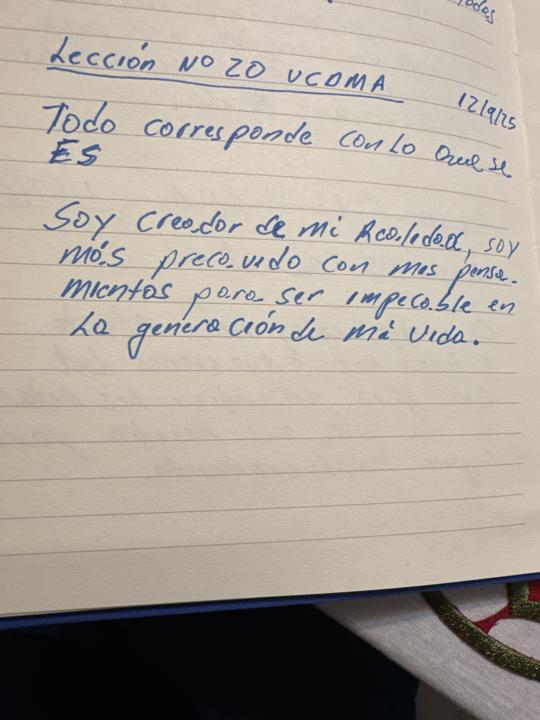 Todos
Lección Nº 20 UCDMA
12/9/25
Todo corresponde con lo que se
ES
Soy creador de mi Realidad, soy
más precavido con mis pensa-
mientos para ser impecable en
La generación de mi vida.